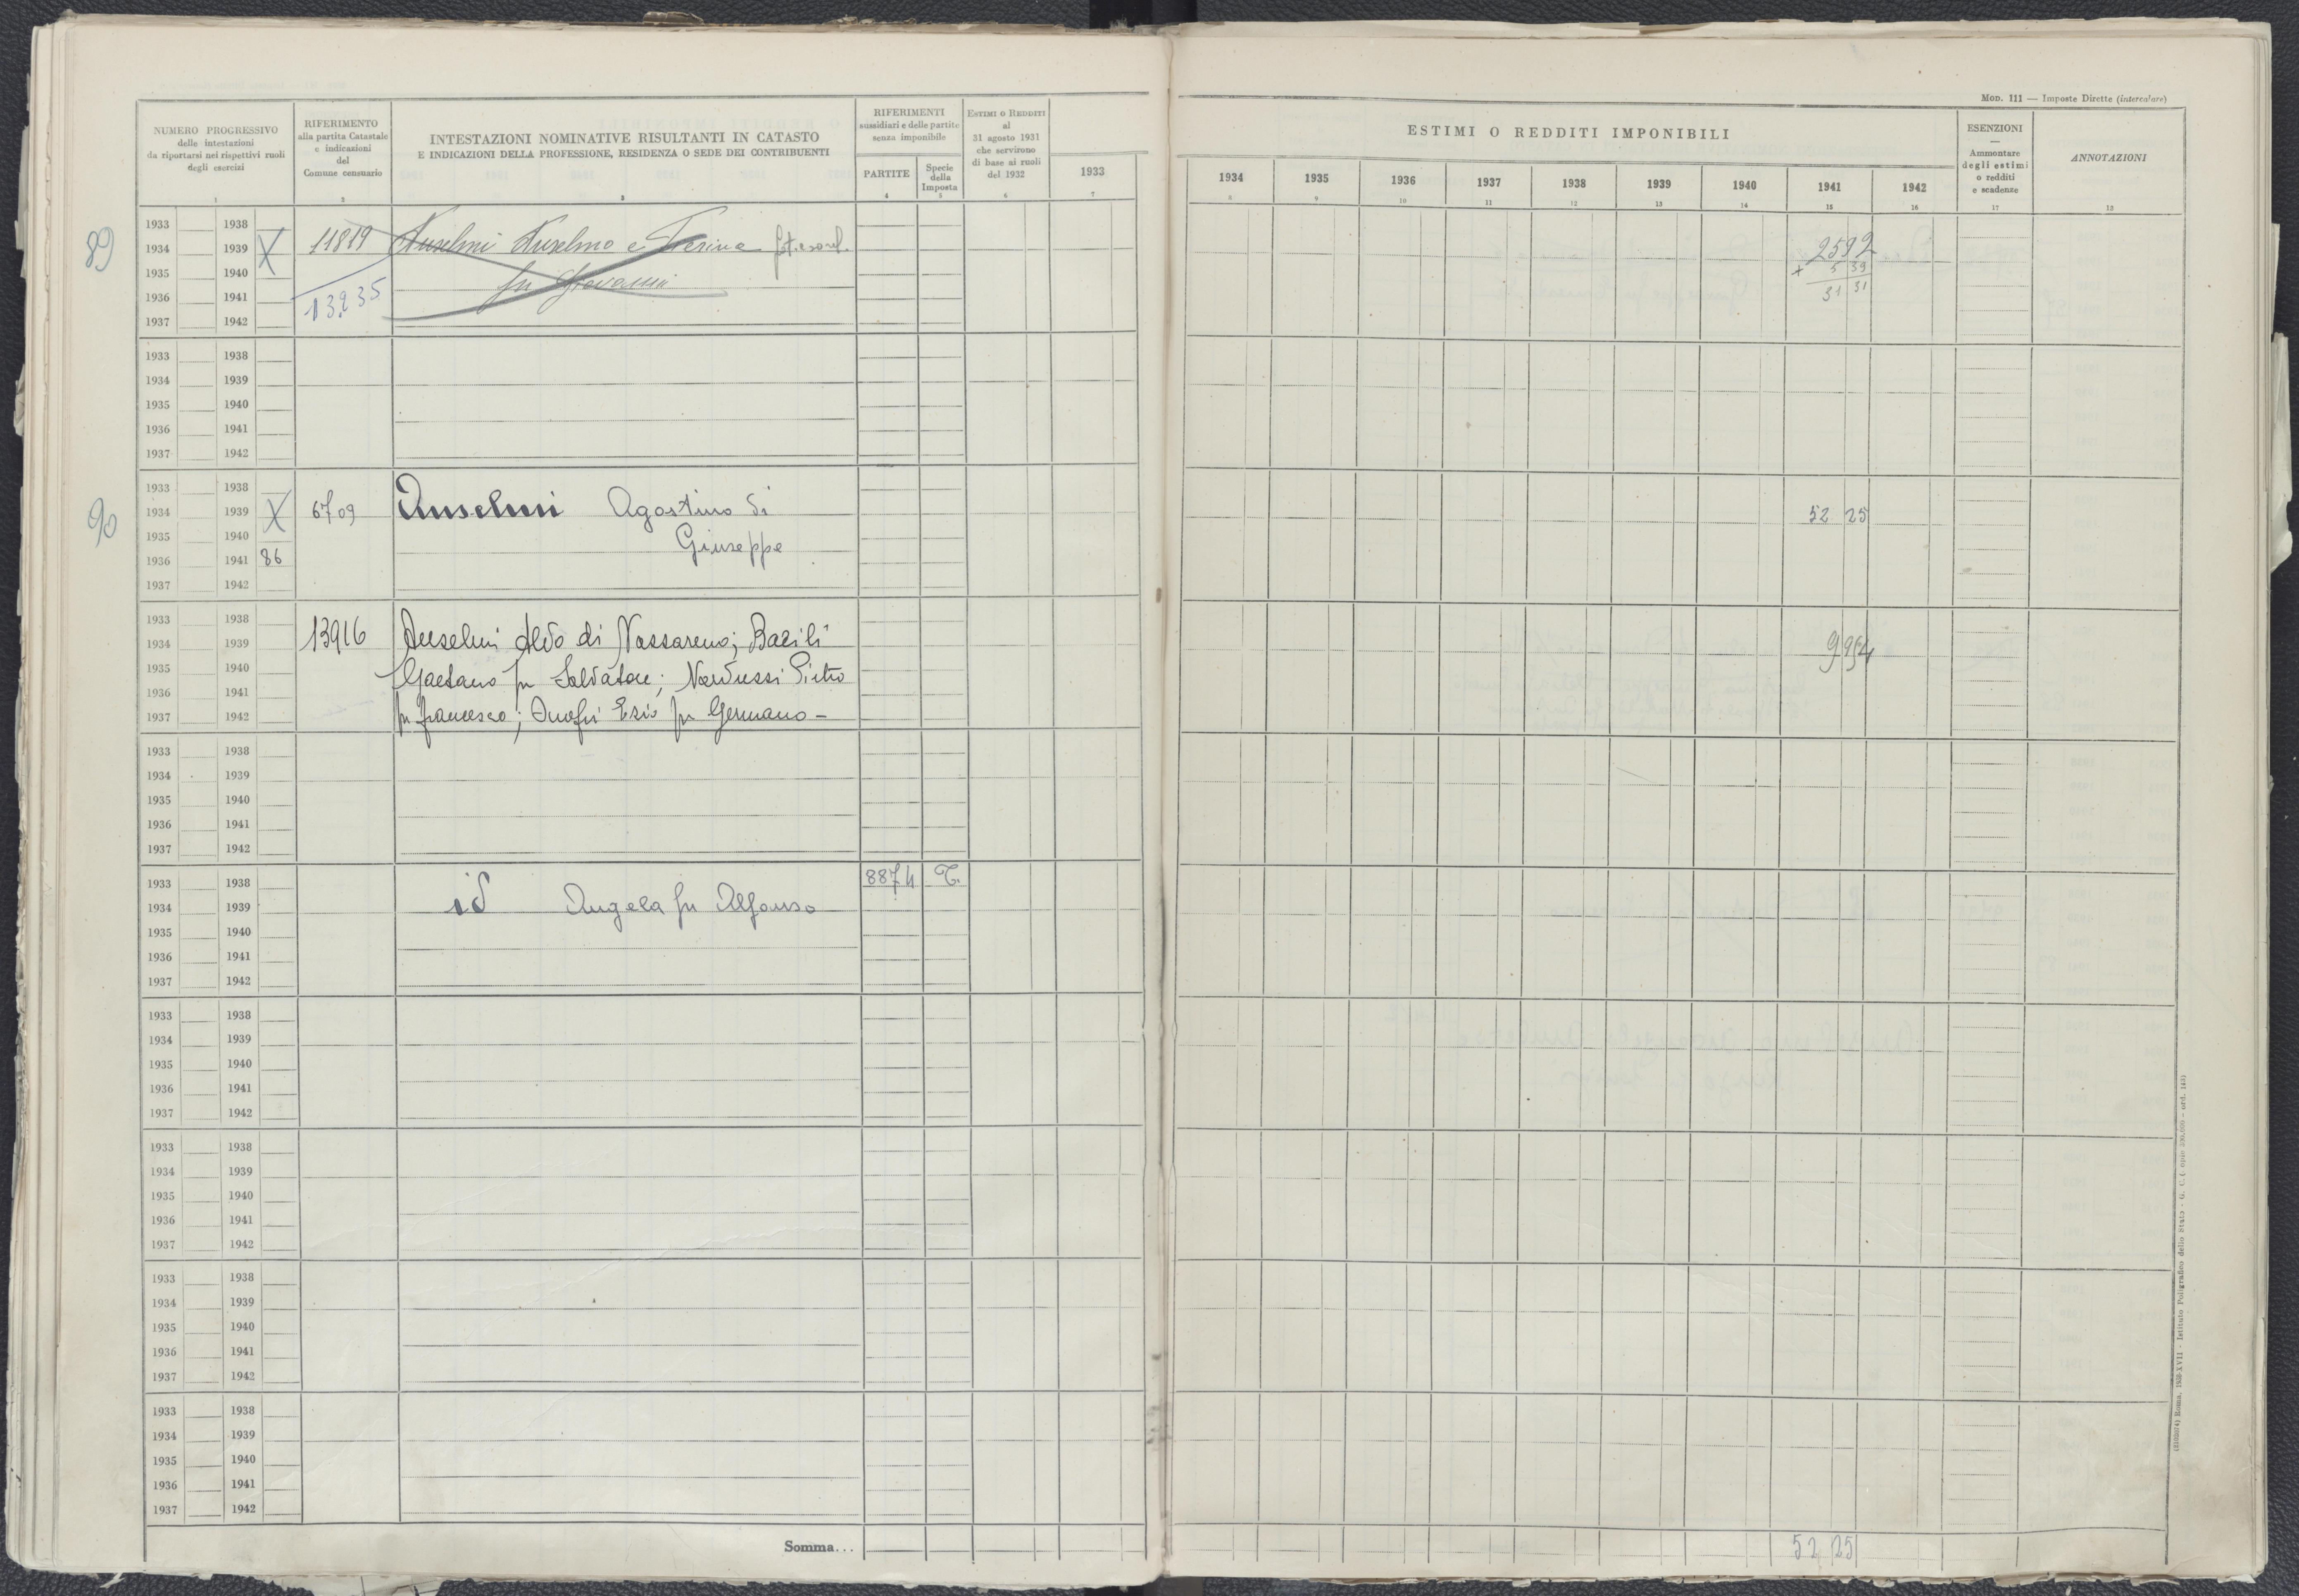 MOD. 111 — Imposte Dirette (intercalare)
NUMERO PROGRESSIVO
delle intestazioni
da riportarsi nei rispettivi ruoli
degli esercizi
1
RIFERIMENTO
alla partita Catastale
e indicazioni
del
Comune censuario
2
INTESTAZIONI NOMINATIVE RISULTANTI IN CATASTO
E INDICAZIONI DELLA PROFESSIONE, RESIDENZA O SEDE DEI CONTRIBUENTI
3
RIFERIMENTI
sussidiari e delle partite
senza imponibile
PARTITE
4
Specie
della
Imposta
5
ESTIMI O REDDITI
al
31 agosto 1931
che servirono
di base ai ruoli
del 1932
6
1933
7
ESTIMI O REDDITI IMPONIBILI
1934 1935 1936 1937 1938 1939 1940 1941 1942
8 9 10 11 12 13 14 15 16
ESENZIONI
—
Ammontare
degli estimi
o redditi
e scadenze
17
ANNOTAZIONI
18
89
1933 1938
1934 1939 X 11819 Anselmi Anselmo e
1935 1940 fu Giovanni
1936 1941 13235
1937 1942
2592
+ 5 39
31 31
1933 1938
1934 1939
1935 1940
1936 1941
1937 1942
90
1933 1938
1934 1939 X 6709 Anselmi Agostino di 52 25
1935 1940 Giuseppe
1936 1941 86
1937 1942
1933 1938
1934 1939 13916 Anselmi Aldo di Nassareno; Bazili 9954
1935 1940 Gaetano fu Salvatore; Nardussi Pietro
1936 1941
1937 1942 fu Francesco; Onofri Ezio fu Germano -
1933 1938
1934 1939
1935 1940
1936 1941
1937 1942
1933 1938 8874 T.
1934 1939 id Angela fu Alfonso
1935 1940
1936 1941
1937 1942
1933 1938
1934 1939
1935 1940
1936 1941
1937 1942
1933 1938
1934 1939
1935 1940
1936 1941
1937 1942
1933 1938
1934 1939
1935 1940
1936 1941
1937 1942
1933 1938
1934 1939
1935 1940
1936 1941
1937 1942
Somma... 52 25
Roma, 1938-XVII - Istituto Poligrafico dello Stato - G. C.